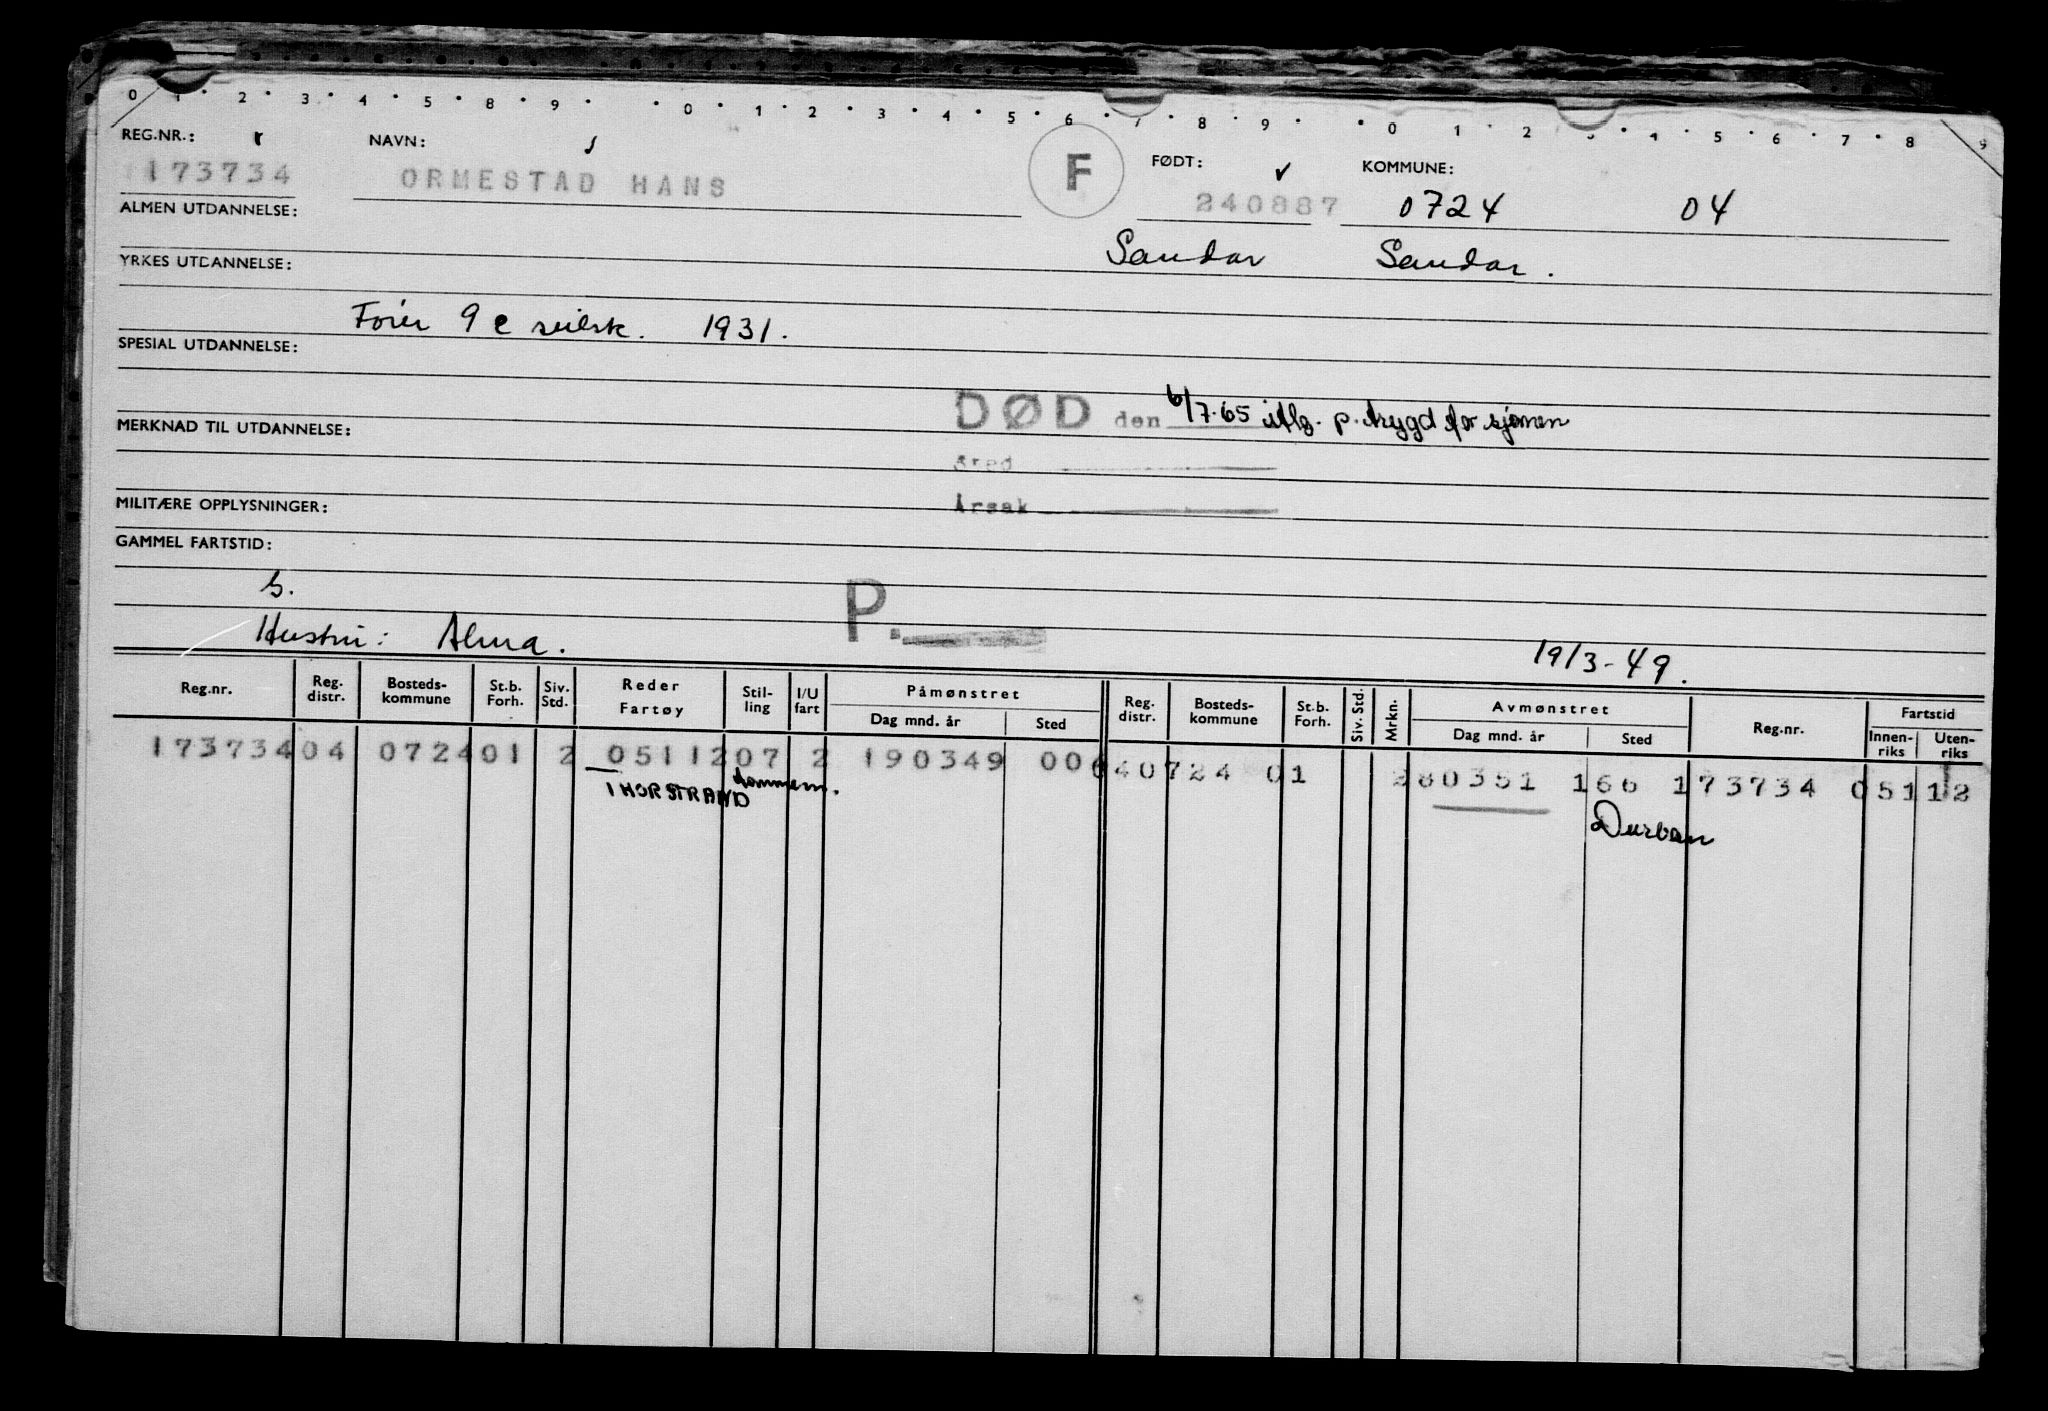 0 1 2 3 4 5 8 9 0 1 2 3 4 5 6 7 8 9 0 1 2 3 4 5 6 7 8 9
REG.NR.: NAVN: F FØDT: KOMMUNE:
173734 ORMESTAD HANS 240887 0724 04
ALMEN UTDANNELSE:
Sandar Sandar.
YRKES UTDANNELSE:
9 e seilsk. 1931.
SPESIAL UTDANNELSE:
DØD den 6/7-65 p. trygd for sjømen
MERKNAD TIL UTDANNELSE:
Sted
MILITÆRE OPPLYSNINGER:
Årsak
GAMMEL FARTSTID:
P.
Hustru: Alma.
19/3-49.
Reg.nr. Reg. distr. Bosteds- kommune St.b. Forh. Siv. Std. Reder Fartøy Stil- ling I/U fart Påmønstret Dag mnd. år Sted Reg. distr. Bosteds- kommune St.b. Forh. Siv. Std. Mrkn. Avmønstret Dag mnd. år Sted Reg.nr. Fartstid Innen- riks Uten- riks
173734 04 0724 01 2 05112 07 2 190349 006 40724 01 280351 166 173734 05112
THORSTRAND tømmerm.
Durban